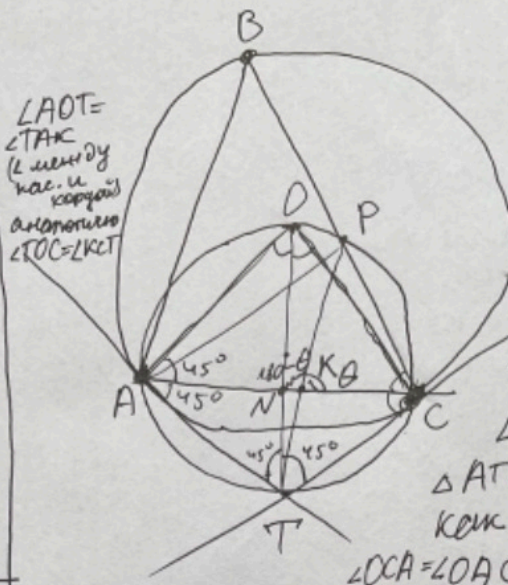 B
∠AOT=
∠TAK
(∠ между
кас. и
хордой)
аналогично
∠TOC=∠KCT
O
P
45°
45°
180-θ
K
θ
A
N
C
45°
45°
T
∠
△AT
как
∠OCA=∠OAC